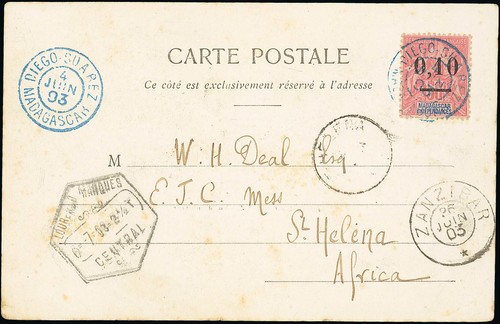 DIEGO-SUAREZ
4
JUIN
03
MADAGASCAR
CARTE POSTALE
Ce côté est exclusivement réservé à l'adresse
DIEGO-SUAREZ
0,10
MADAGASCAR
ET DÉPENDANCES
M W. H. Deal Esq.
E. J. C. Mess
St Helena
Africa
LOURENÇO MARQUES
CENTRAL
ZANZIBAR
26
JUIN
03